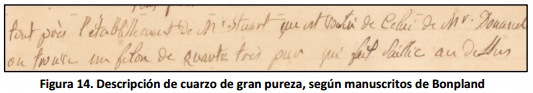 tout près l'établissement de Mr Stuart qui est voisin de Celui de Mr. Donané
on trouve un filon de quartz très pur qui fait saillie au dessus
Figura 14. Descripción de cuarzo de gran pureza, según manuscritos de Bonpland